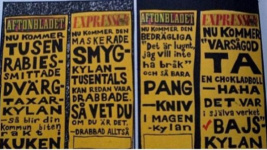 AFTONBLADET
NU KOMMER
TUSEN
RABIES-
SMITTADE
DVÄRG-
TAXAR-
KYLAN
– så blir din
kommun biten
rakt i
KUKEN
EXPRESSEN
NU KOMMER DEN
MASKERADE
SMYG-
KYLAN
– TUSENTALS
KAN REDAN VARA
DRABBADE.
SÅ VET DU
OM DU ÄR DET.
– DRABBAD ALLTSÅ
AFTONBLADET
NU KOMMER DEN
BEDRÄGLIGA,
"Det är lugnt,
jag vill inte
ha bråk"
OCH SÅ BARA
PANG
– KNIV
I MAGEN
-kylan
EXPRESSEN
NU KOMMER
"VARSÅGOD
TA
EN CHOKLADBOLL
– HAHA
DET VAR
i själva verket
BAJS"
KYLAN